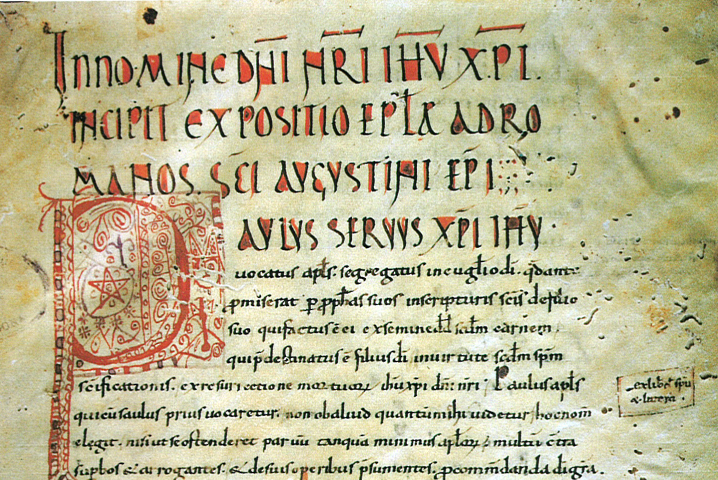 IN NOMINE DNI NRI IHU XPI.
INCIPIT EXPOSITIO EPLA AD RO
MANOS SCI AUGUSTINI EPI
PAULUS SERVUS XPI IHU
uocatus apls. segregatus in euglio di. qd ante
pmiserat p pphas suos in scripturis scis de filio
suo qui factus e ei ex semine dd scdm carnem
qui pdestinatus e filius di in uirtute scdm spm
scificationis. ex resurrectione mortuoru ihu xpi dni nri. Paulus apls
qui cu saulus prius uocaretur. non ob aliud quantum mihi uidetur hoc nom
elegit. nisi ut se ostenderet paruu tanqua minimus aplor multu contra
supbos & arrogantes. & de suis operibus psumentes. p commendanda di gra.
ex libris